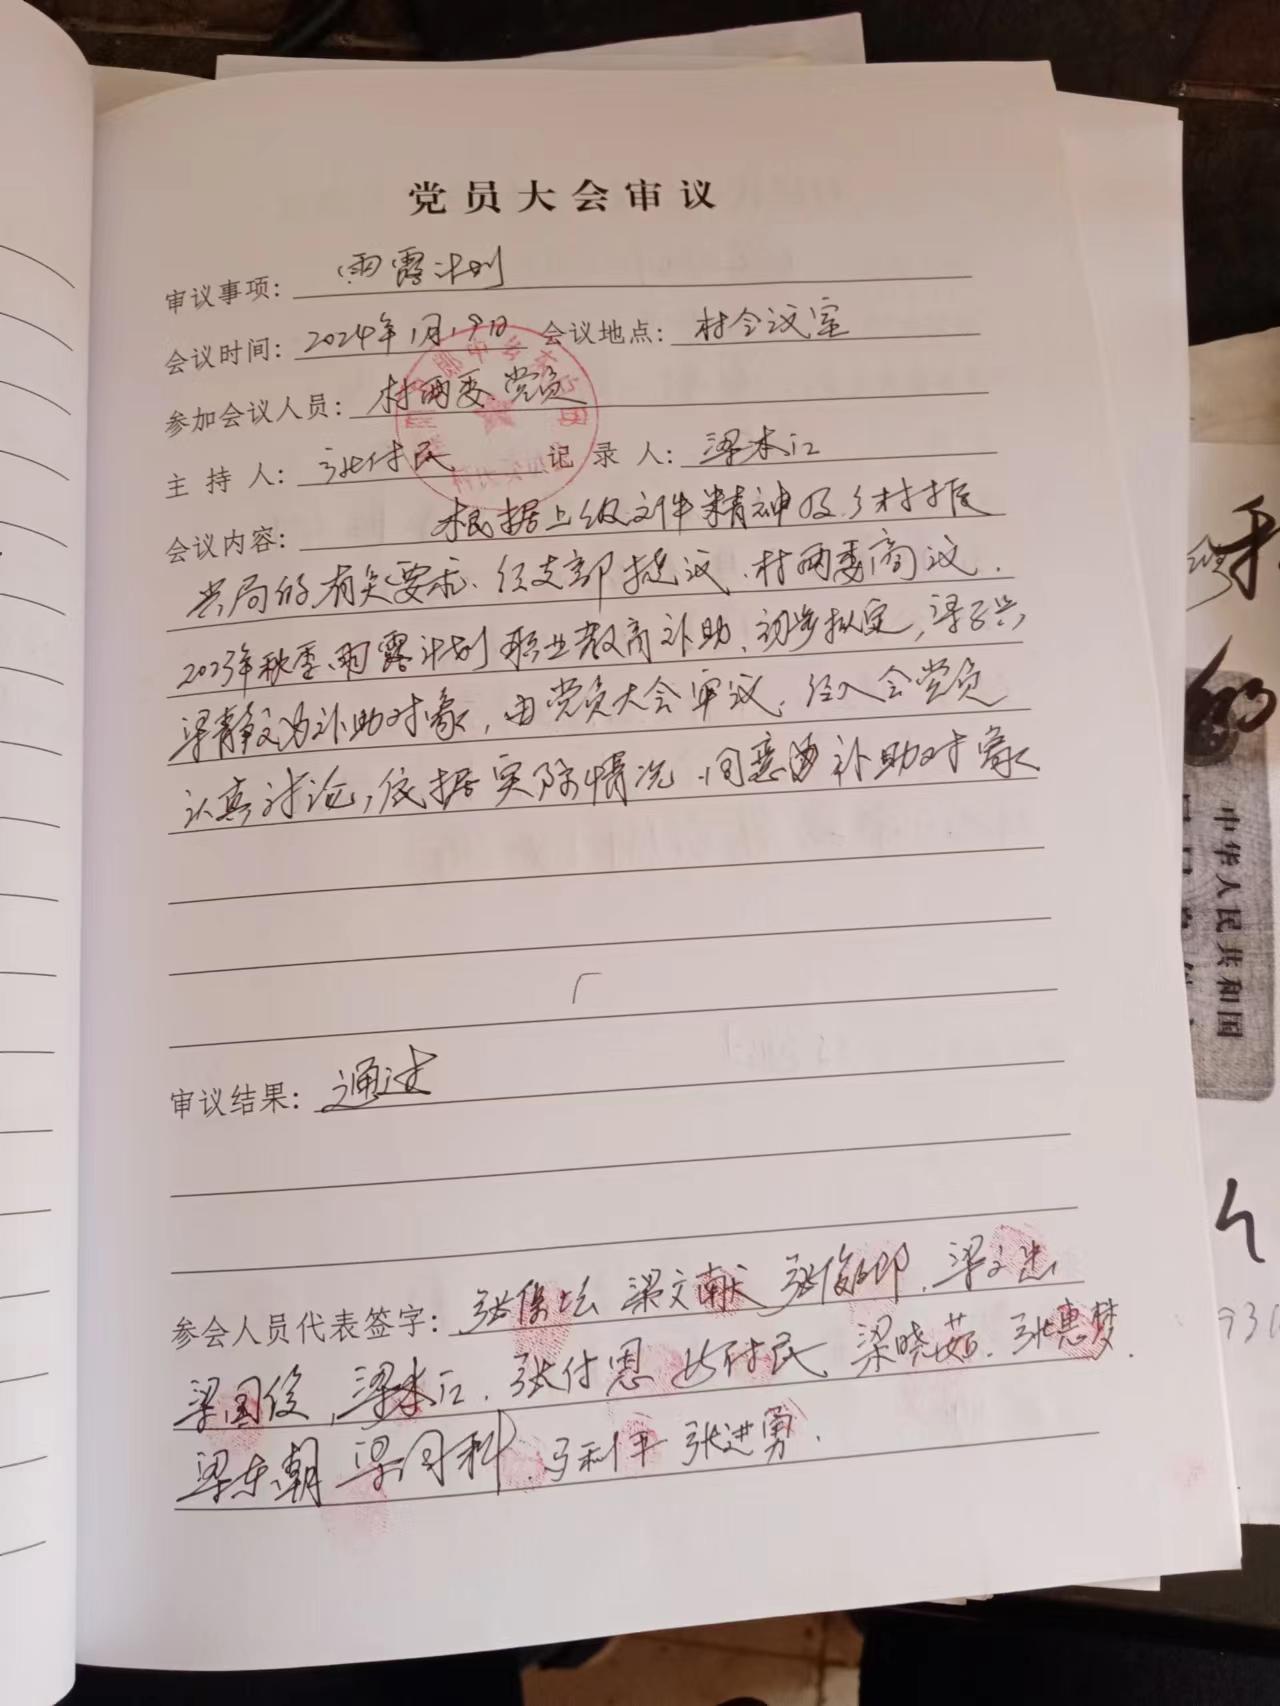 党员大会审议
审议事项: 雨露计划
会议时间: 2024年1月19日 会议地点: 村会议室
参加会议人员: 村两委、党员
主持人: 张付民 记录人: 梁木江
会议内容: 根据上级文件精神及乡村振
兴局的有关要求、经支部提议、村两委商议.
2023年秋季雨露计划职业教育补助、初步拟定,梁子兴,
梁静文为补助对象,由党员大会审议、经入会党员
认真讨论,依据实际情况、同意为补助对象
审议结果: 通过
参会人员代表签字: 梁文献 梁文忠
梁国俊,梁木江.张付恩 张付民 梁晓茹.张惠梦.
梁东潮 梁同科 马利平 张进勇.
中华人民共和国